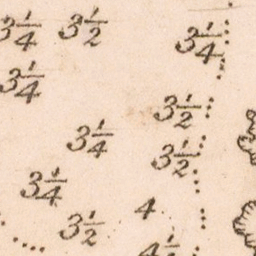 3¼ 3½ 3¼
3¼
3½
3¼ 3½
3¼
3½ 4
4½